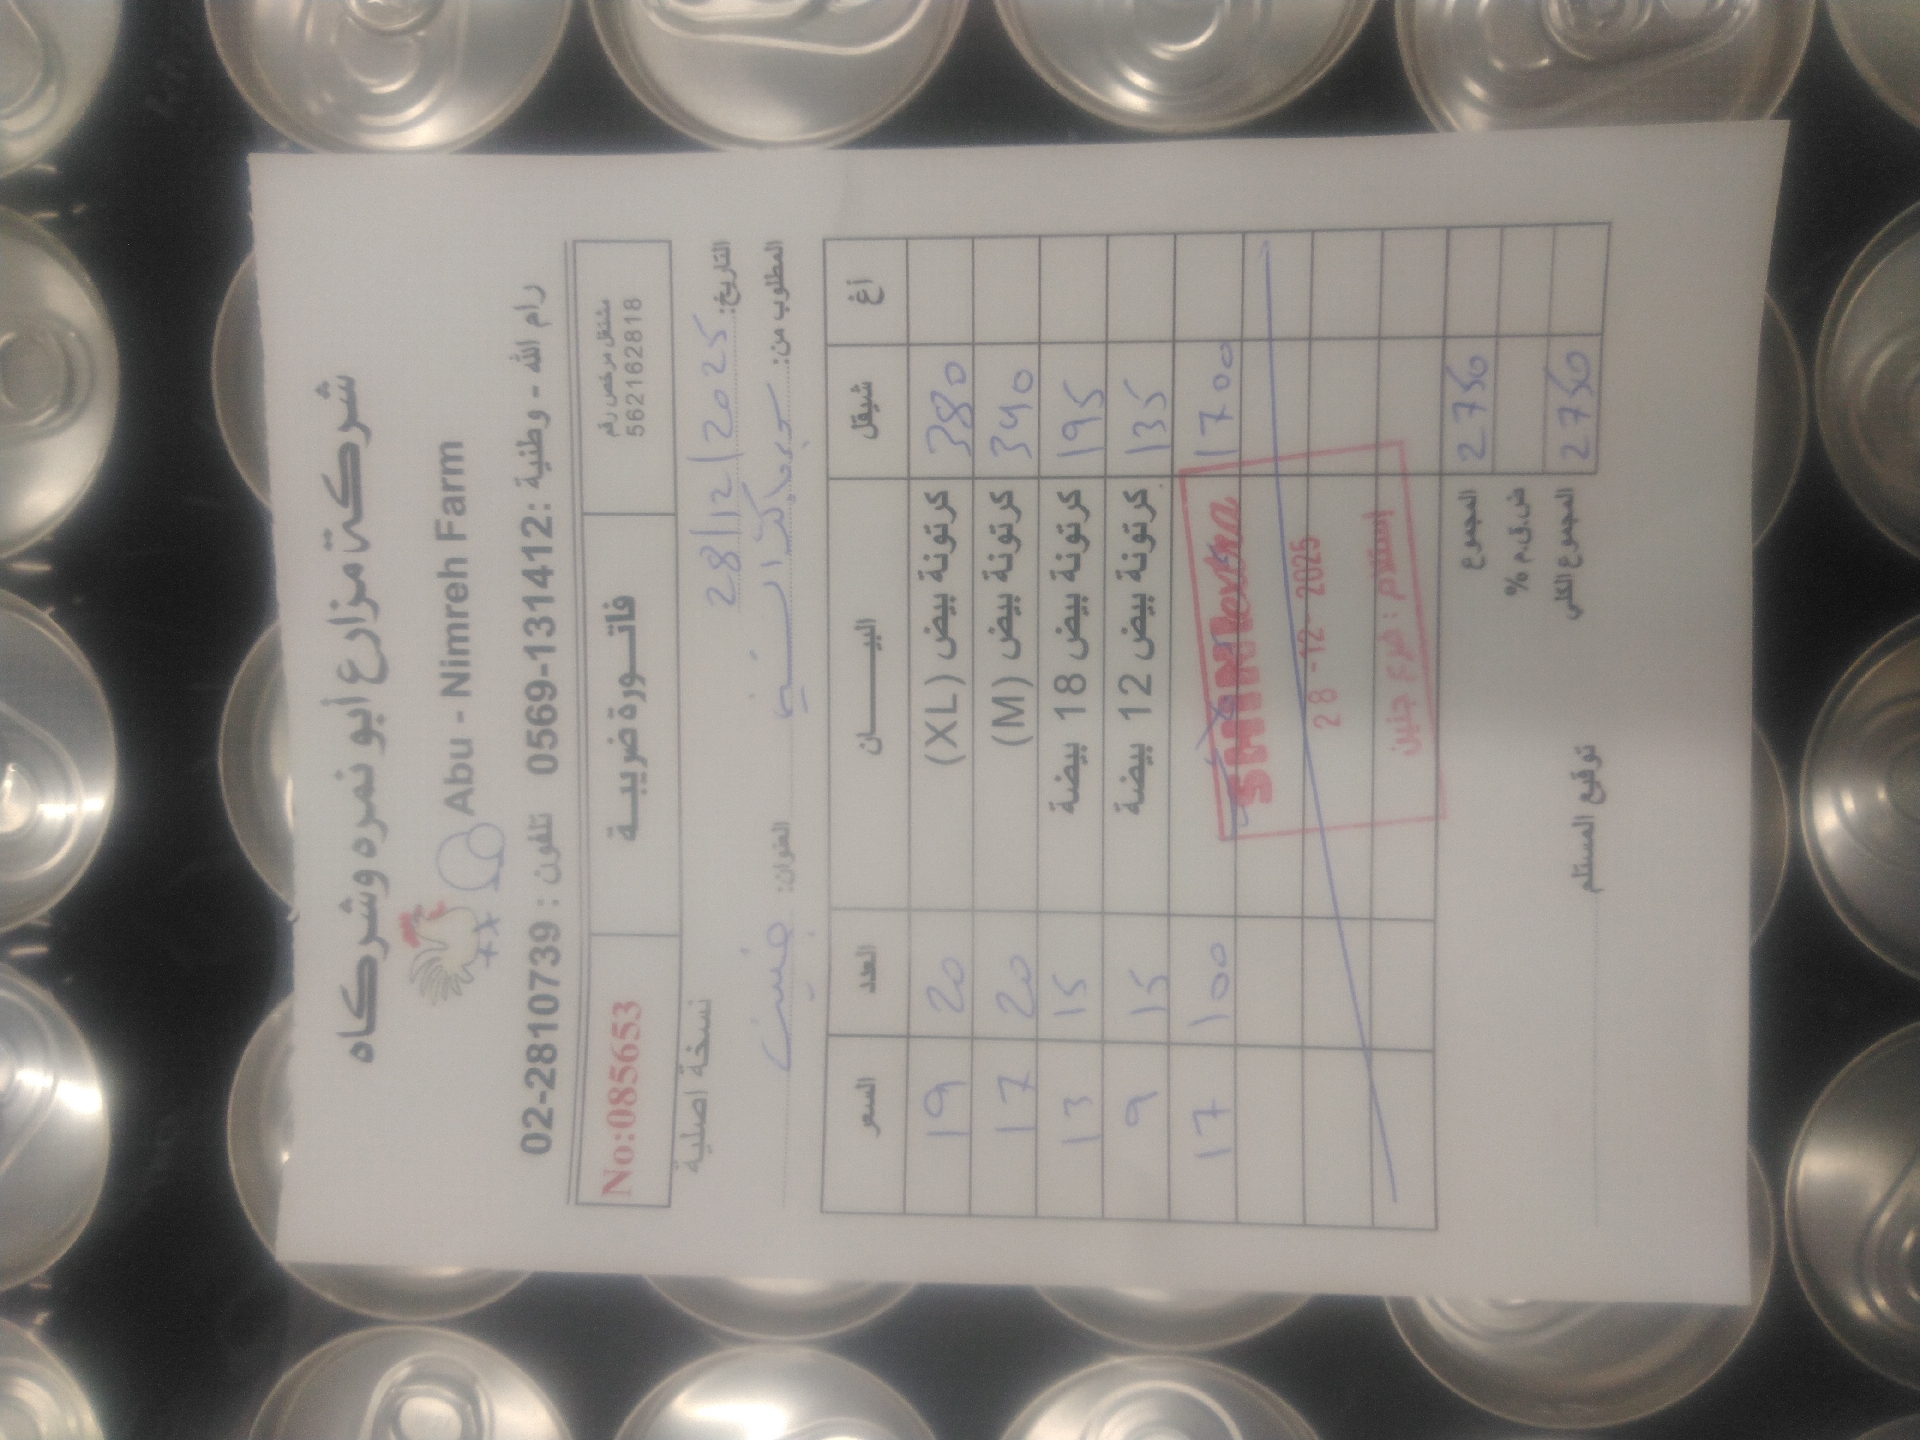 شركة مزارع أبو نمره وشركاه
Abu - Nimreh Farm
رام الله - وطنية :0569-131412 تلفون : 02-2810739
مشتغل مرخص رقم 562162818
فاتورة ضريبية
No:085653
التاريخ: 28/12/2025
نسخة اصلية
المطلوب من:
العنوان: جنين
أغ شيقل البيان العدد السعر
380 كرتونة بيض (XL) 20 19
340 كرتونة بيض (M) 20 17
195 كرتونة بيض 18 بيضة 15 13
135 كرتونة بيض 12 بيضة 15 9
1700 100 17
SHINI extra
28 -12- 2025
استلام : فرع جنين
2750 المجموع
ض.ق.م %
2750 المجموع الكلي
توقيع المستلم